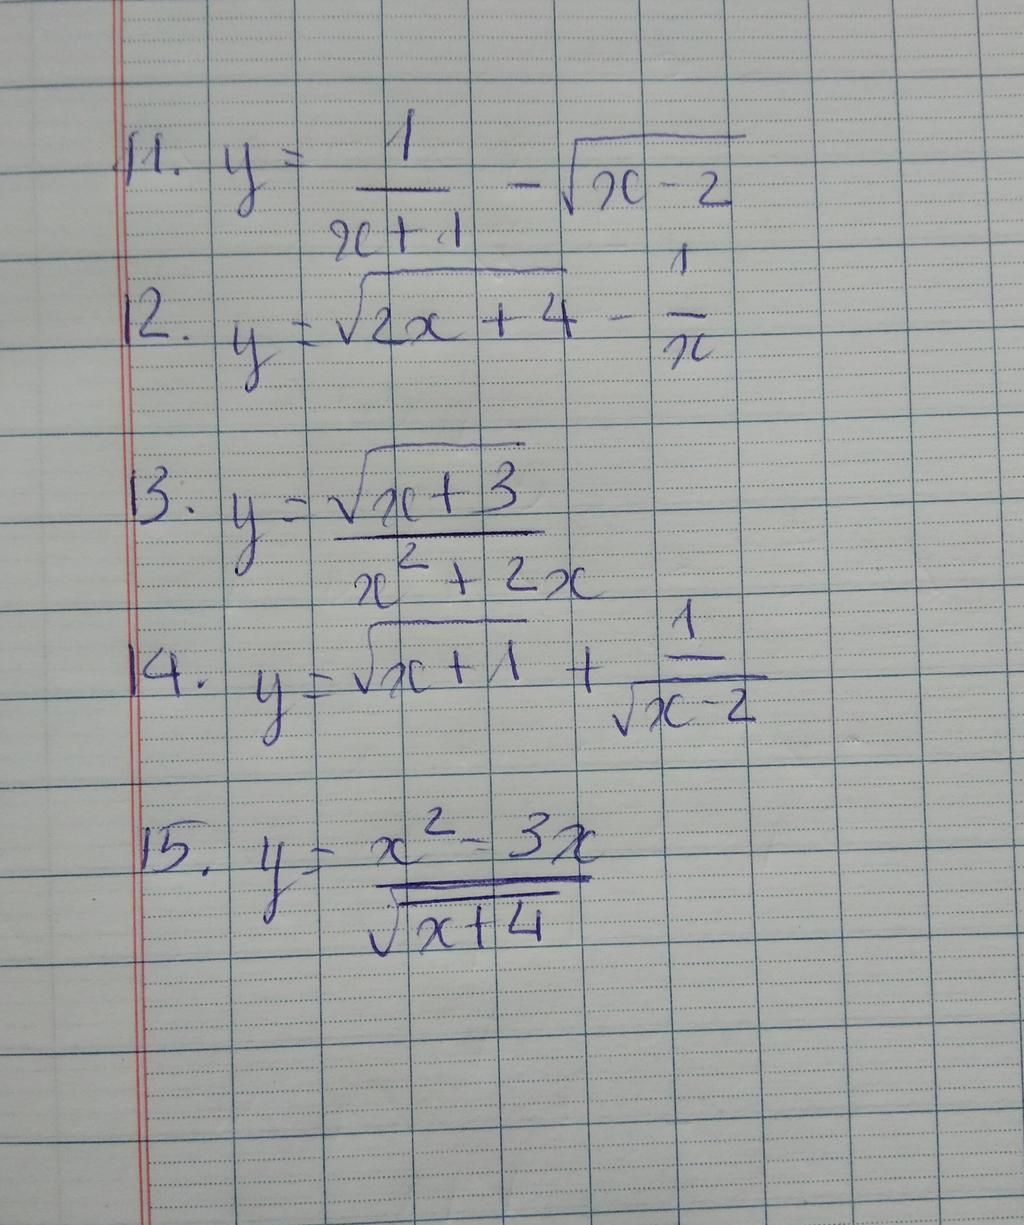 11. y = 1/(x+1) - √(x-2)
12. y = √(2x+4) - 1/x
13. y = √(x+3)/(x²+2x)
14. y = √(x+1) + 1/√(x-2)
15. y = (x²-3x)/√(x+4)